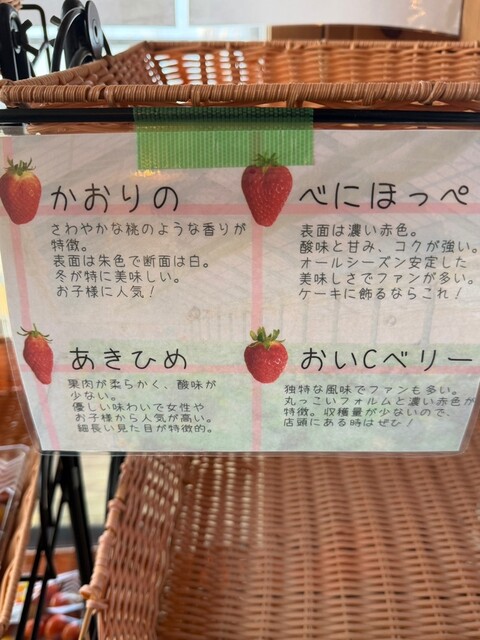 かおりの
さわやかな桃のような香りが
特徴。
表面は朱色で断面は白。
冬が特に美味しい。
お子様に人気！
べにほっぺ
表面は濃い赤色。
酸味と甘み、コクが強い。
オールシーズン安定した
美味しさでファンが多い。
ケーキに飾るならこれ！
あきひめ
果肉が柔らかく、酸味が
少ない。
優しい味わいで女性や
お子様から人気が高い。
細長い見た目が特徴的。
おいCベリー
独特な風味でファンも多い。
丸っこいフォルムと濃い赤色が
特徴。収穫量が少ないので、
店頭にある時はぜひ！